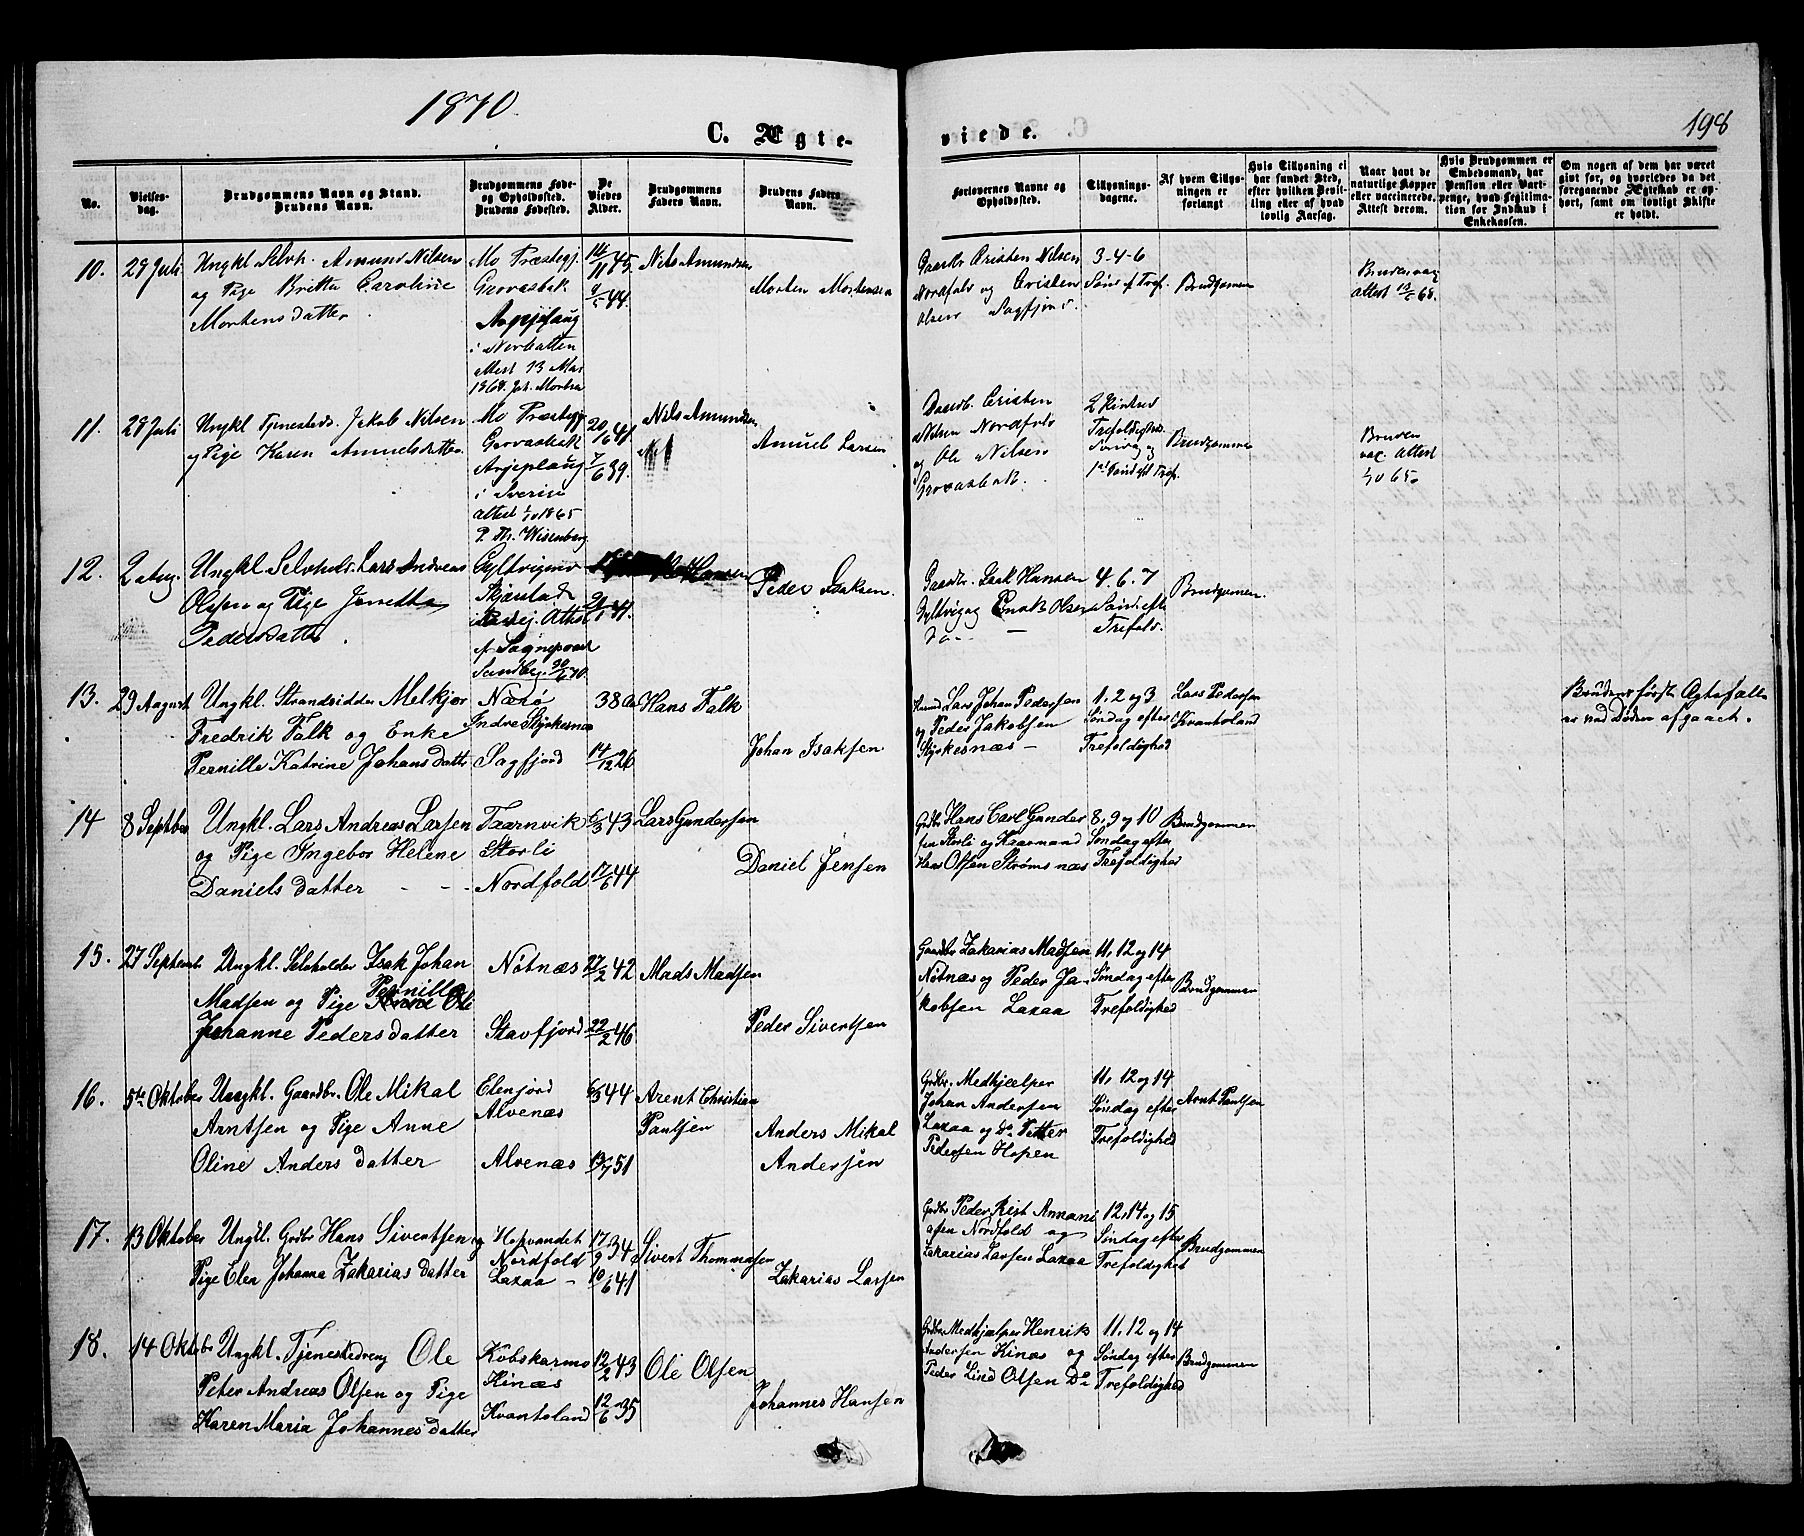 1870.
198
C. Ægte-
viede.
No.
Vielses-
dag.
Brudgommens Navn og Stand.
Brudens Navn.
Brudgommens Føde-
og Opholdssted.
Brudens Fødested.
De
Viedes
Alder.
Brudgommens
Faders Navn.
Brudens Faders
Navn.
Forlovernes Navne og
Opholdssted.
Tillysnings-
dagene.
Af hvem Tillys-
ningen er
forlangt
Hvis Tillysning ei
har fundet Sted,
efter hvilken Bevil-
ling eller af hvad
lovlig Aarsag.
Naar havt de
naturlige Kopper
eller vaccinerede.
Attest derom.
Hvis Brudgommen er
Embedsmand, har
Pension eller Vart-
penge, hvad Legitima-
tion for Indskud i
Enkekassen.
Om nogen af dem har været
gift før, og hvorledes da det
foregaaende Ægteskab er op-
hørt, samt om lovligt Skifte
er holdt.
10. 28 Juli
Ungkl Selvh. Amund Nilsen
og Pige Britta Caroline
Mortensdatter.
Mo Præstegj.
Grovasbak
Arjeplaug
i Norbotten
Attest 13 Mai
14/11 45.
9/5 44.
Nils Amundsen
Morten Mortensen
Gaardbr Cristen Nilsen
Nordfold og Cristen
Olsen Sagfjord.
3-4-6
Sønd. ef Tref.
Brudgomen
Bruden vac
attest 68.
11. 28 Juli
Ungkl Tjenestedr. Jakob Nilsen
og Pige Karen Amuelsdatter
Mo Præstegj
Grovasbak
Arjeplaug
i Sverige
attest 1/10 1865
P. Th. Wisenberg
20/6 41
7/6 39.
Nils Amundsen
Amuel Larsen
Gaardb. Cristen
Nilsen Nordfold
og Ole Nilsen
Grovasbak.
Trefoldighds.
1ste Sønd eft Tref.
Brudgomme
Bruden
vac. attest
1/10 65.
12. 2 Aug.
Ungkl Selvhold. Lars Andreas
Olsen og Pige Jonetta
Pedersdatter.
Gyltvigmo
Skjerstad
Sundby 30/6 70.
21/1 41.
Peder Isaksen.
Gaardbr. Isak Hansen
Gyltvig og Enok Olsen
Do — —
4. 6. 7
Sønd. efter
Trefold.
Brudgomen.
13. 29 August
Ungkl. Strandsidder Melkjør
Fredrik Falk og Enke
Pernille Katrine Johansdatter
Nærø
Indre Styrkesnæs
Sagfjord
38 Aar
14/12 26
Hans Falk
Johan Isaksen
Lars Johan Pedersen
og Peder Jakobsen
Styrkesnæs —
1, 2 og 3
Søndag efter
Trefoldighed
Lars Pedersen
Kvantoland
Brudens første Ægtefælle
er ved Døden afgaaet.
14 8 Septber
Ungkl. Lars Andreas Larsen
og Pige Ingebor Helene
Danielsdatter - - -
Taarnvik
Storli
Nordfold
6/3 43
17/6 44
Lars Gundersen
Daniel Jensen
Grdbr Hans Carl Gunder
sen Storli og Kaarmand
Hans Olsen Strømsnæs
8, 9 og 10
Søndag efter
Trefoldighed
Brudgommen
15. 27 Septemb
Ungkl. Selvholder Isak Johan
Pernille
Madsen og Pige Anne Ole
Johanne Pedersdatter
Nötnæs
Stavfjord
27/2 42
22/2 46
Mads Madsen
Peder Sivertsen
Gaardbr Zakarias Madsen
Nötnæs og Peder Ja-
kobsen Laxaa
11, 12 og 14
Søndag efter
Trefoldighed
Brudgommen
16. 5te Oktober
Ungkl. Gaardbr. Ole Mikal
Arntsen og Pige Anne
Oline Andersdatter
Elenjord
Alvenæs
Alvenæs
6/5 44
13/7 51
Arent Christian
Paulsen
Anders Mikal
Andersen
Grdbr. Medhjælper
Johan Andersen
Laxaa og Do Petter
Pedersen Hopen
11, 12 og 14
Søndag efter
Trefoldighed
Arnt Paulsen
17. 13 Oktober
Ungkl. Grdbr Hans Sivertsen og
Pige Elen Johanna Zakariasdatter
Hopvandet
Nordfold
Laxaa -
17/9 34
10/6 41
Sivert Thommesen
Zakarias Larsen
Grdbr Peder Rist Annani
asen Nordfold og
Zakarias Larsen Laxaa
12, 14 og 15
Søndag efter
Trefoldighet
Brudgommen
18. 14 Oktobr
Ungkl. Tjenestedreng Ole
Peter Andreas Olsen og Pige
Karen Maria Johannesdatter
Kobskarmo
Kinæs
Kvantoland
12/2 43
12/6 35
Ole Olsen
Johannes Hansen
Grdbr. Medhjælper Henrik
Andersen Kinæs og
Peder Lind Olsen Do
11, 12 og 14
Søndag efter
Trefoldighed
Brudgommen